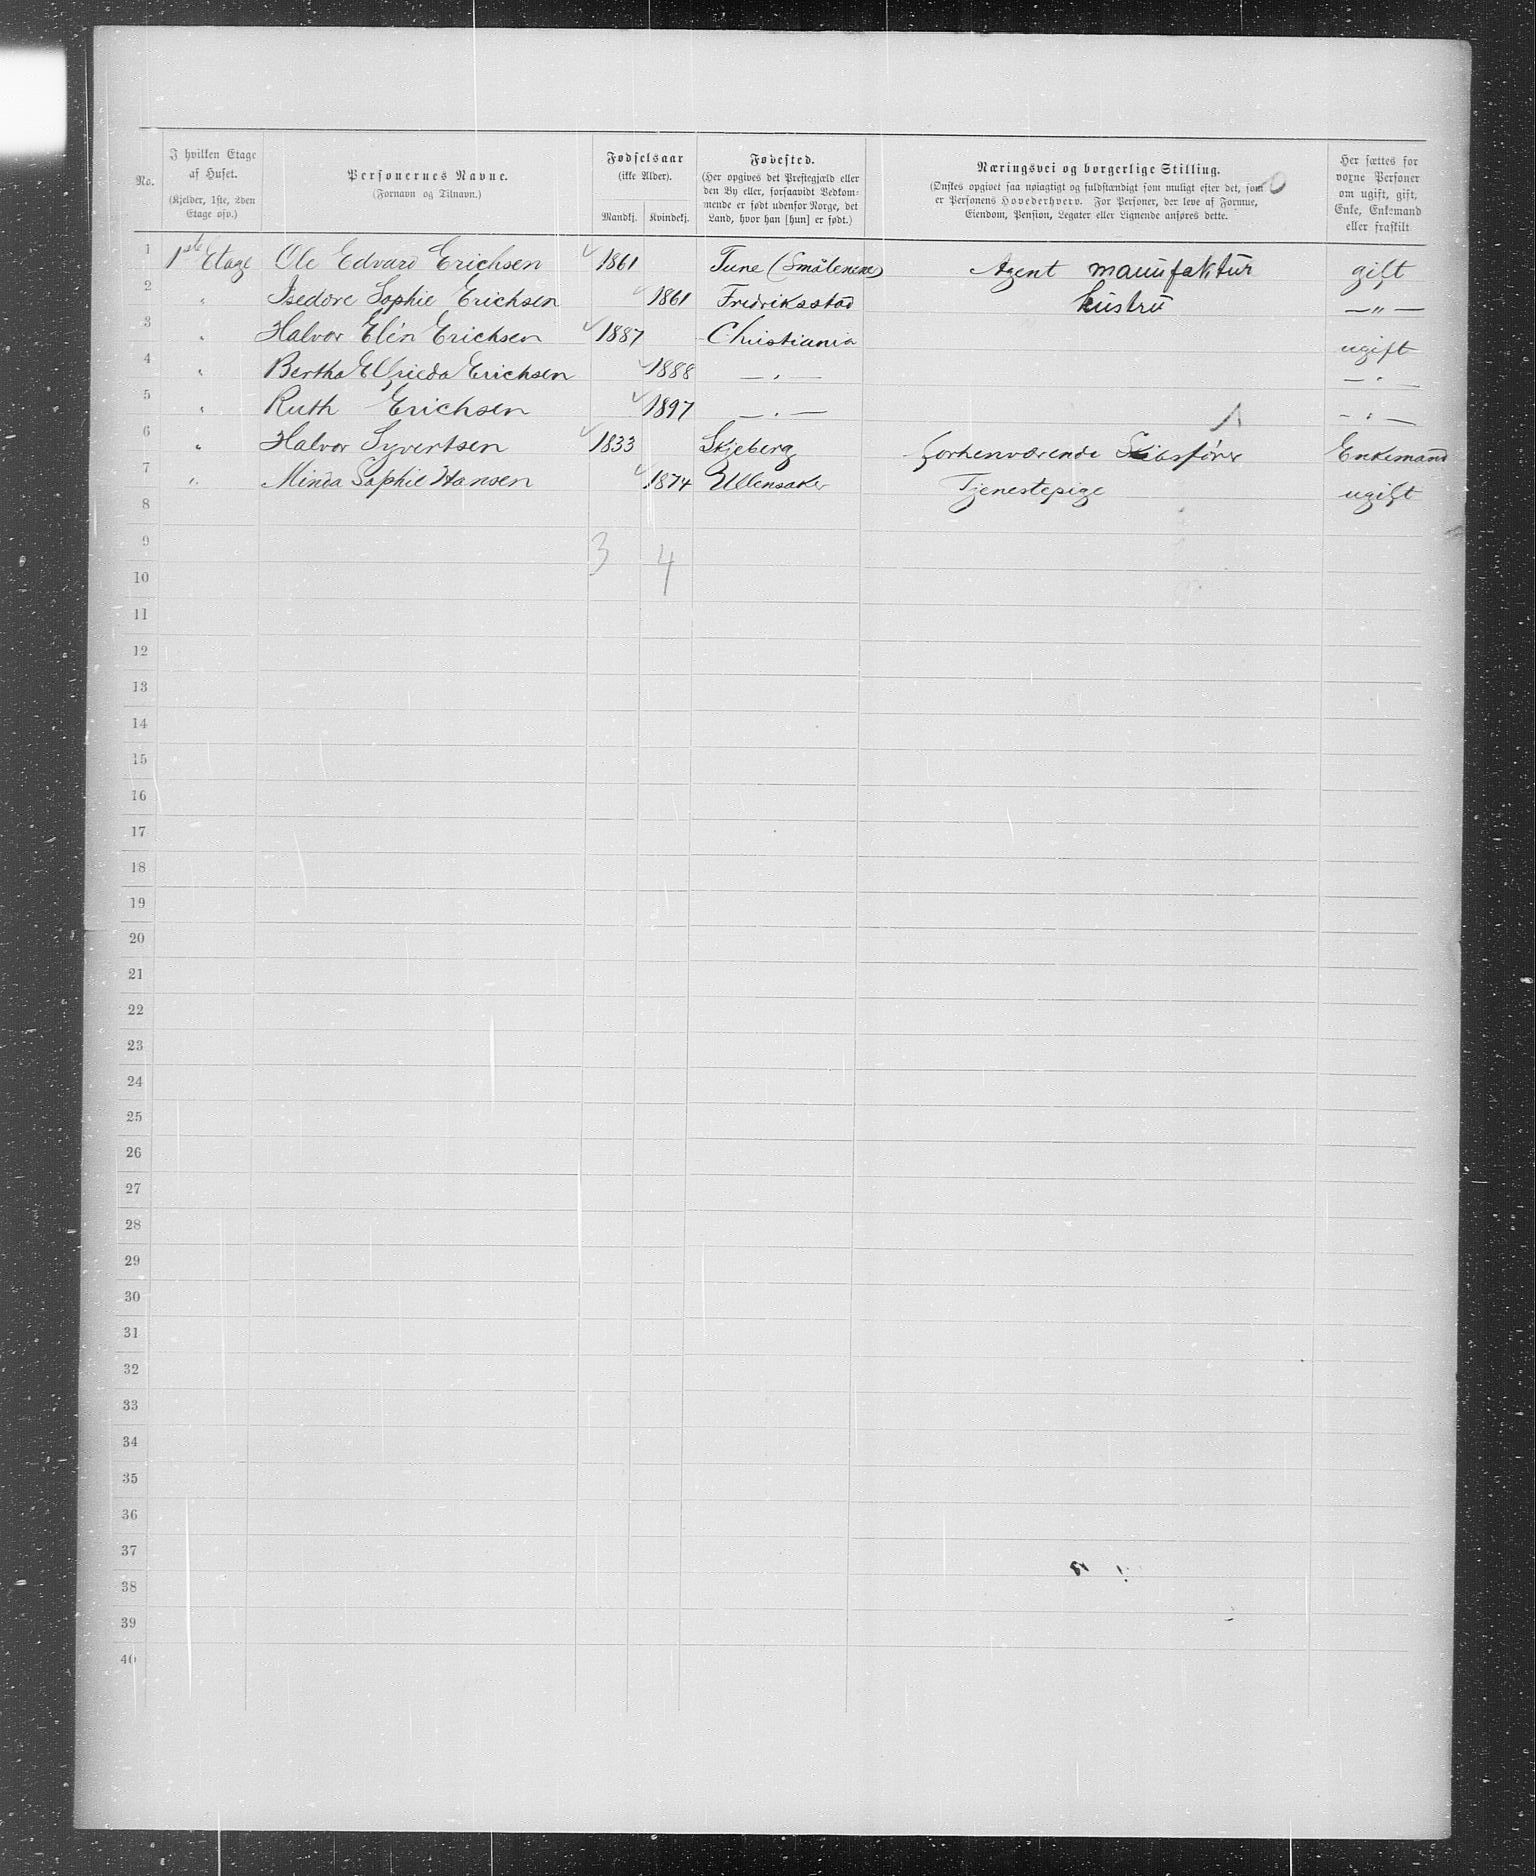 No.
I hvilken Etage af Huset.
(Kjelder, 1ste, 2den Etage osv.)
Personernes Navne.
(Fornavn og Tilnavn.)
Fødselsaar
(ikke Alder).
Mandkj. Kvindekj.
Fødested.
(Her opgives det Prestegjæld eller
den By eller, forsaavidt Vedkom-
mende er født udenfor Norge, det
Land, hvor han [hun] er født.)
Næringsvei og borgerlige Stilling.
(Ønskes opgivet saa nøiagtigt og fuldstændigt som muligt efter det, som
er Personens Hovederhverv. For Personer, der leve af Formue,
Eiendom, Pension, Legater eller Lignende anføres dette.
Her sættes for
voxne Personer
om ugift, gift,
Enke, Enkemand
eller fraskilt
0
1 1ste Etage Ole Edvard Erichsen 1861 Tune (Smålenene) Agent manufaktur gift
2 " Isedore Sophie Erichsen 1861 Fredriksstad hustru —"—
3 " Halvor Elén Erichsen 1887 Christiania ugift
4 " Bertha Elfrieda Erichsen 1888 —"— —"—
5 " Ruth Erichsen 1897 —"— —"—
6 " Halvor Syvertsen 1833 Skjeberg forhenværende Skibsfører Enkemand
7 " Minda Sophie Hansen 1874 Ullensaker Tjenestepige ugift
8
9 3 4
10
11
12
13
14
15
16
17
18
19
20
21
22
23
24
25
26
27
28
29
30
31
32
33
34
35
36
37
38
39
40